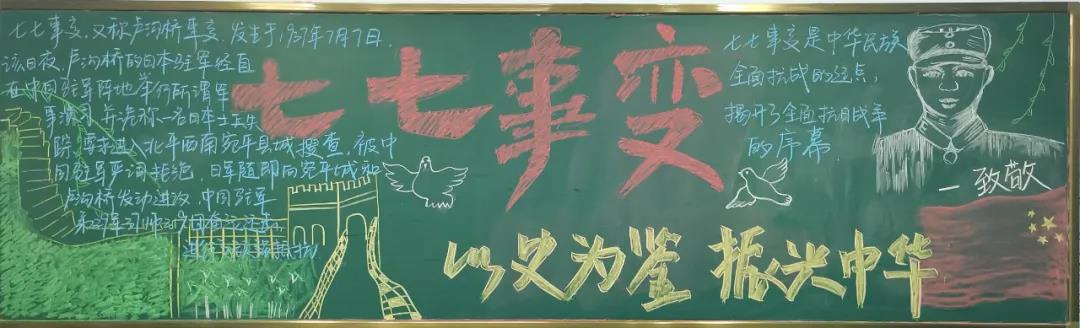 七七事变,又称卢沟桥事变,发生于1937年7月7日.
该日夜,卢沟桥的日本驻军径自
在中国驻军阵地举行所谓军
事演习,并诡称一名日本士兵失
踪,要求进入北平西南宛平县城搜查,被中
国驻军严词拒绝,日军随即向宛平城和
卢沟桥发动进攻,中国驻军
第29军
七七事变
以史为鉴 振兴中华
七七事变是中华民族
全面抗战的起点,
揭开了全面抗日战争
的序幕
一致敬